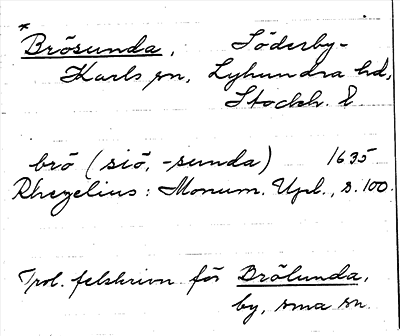 *
Brösunda, Söderby-
Karls sn, Lyhundra hd,
Stockh. l
brö (siö, -sunda) 1635
Rhezelius: Monum. Upl., s. 100.
Trol. felskrivn för Brölunda,
by, sma sn.